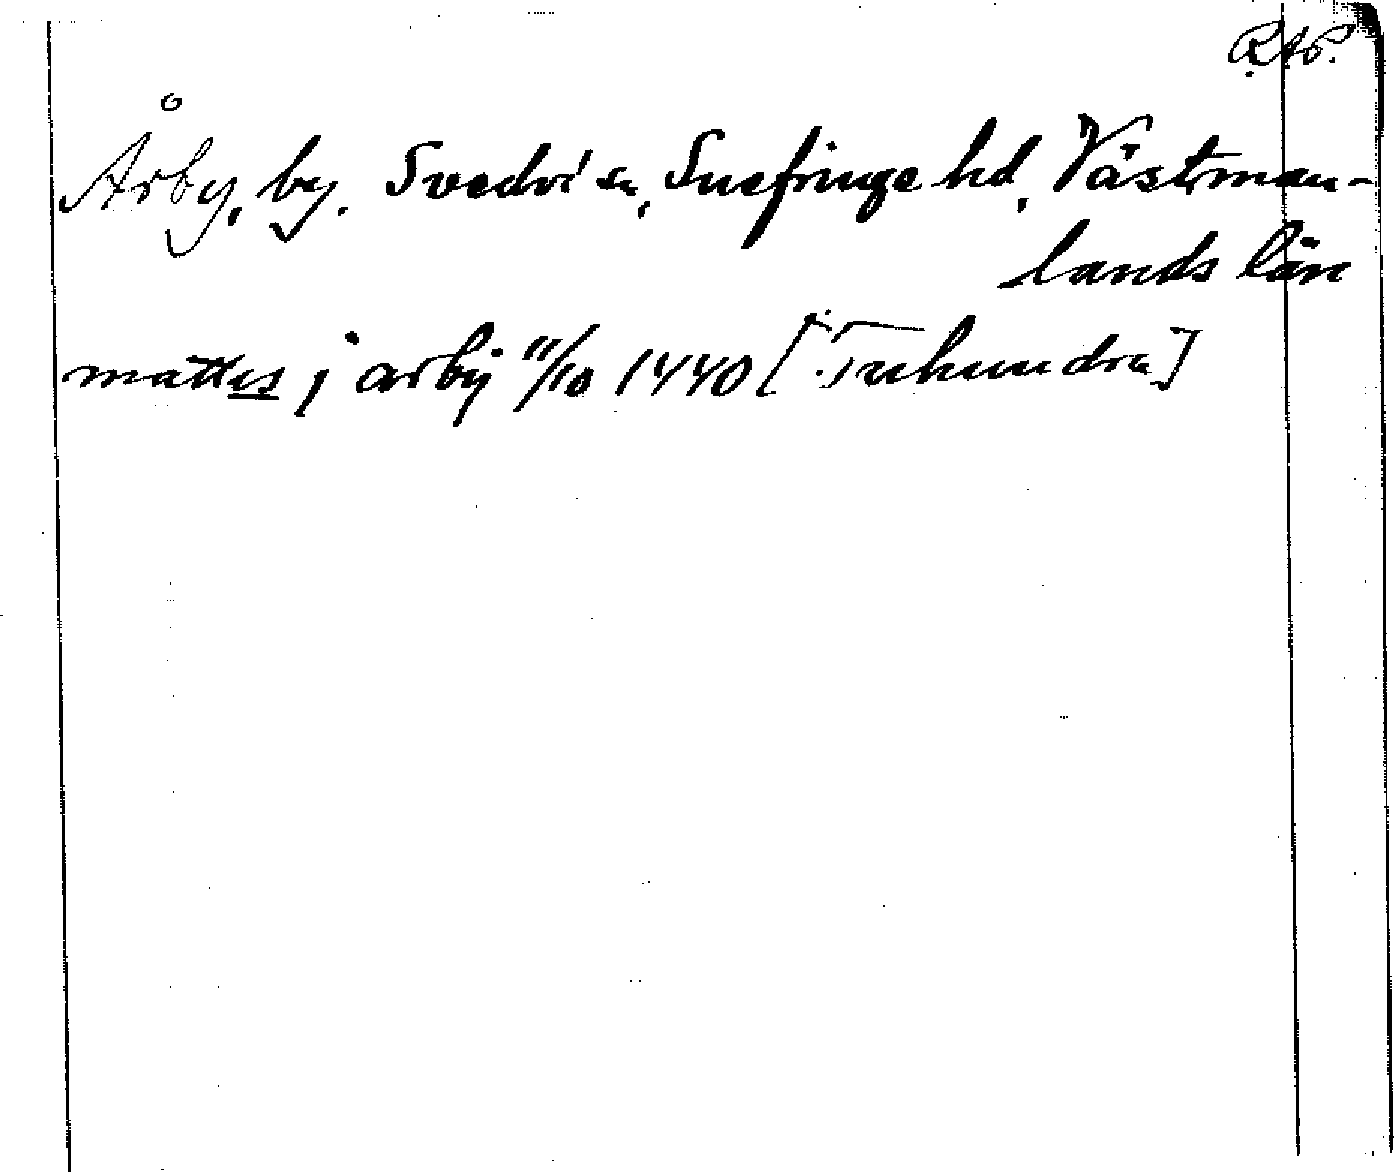 RAP.
Årby, by. Svedvi sn, Snefringe hd, Västman-
lands län
mattes j arby 11/10 1440 [Tuhundra]